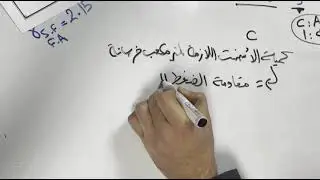 γs.f = 2.15
F.A
C
كمية الاسمنت اللازمة لمتر مكعب خرسانة
كم = مقاومة الضغط ال
C:A
1: